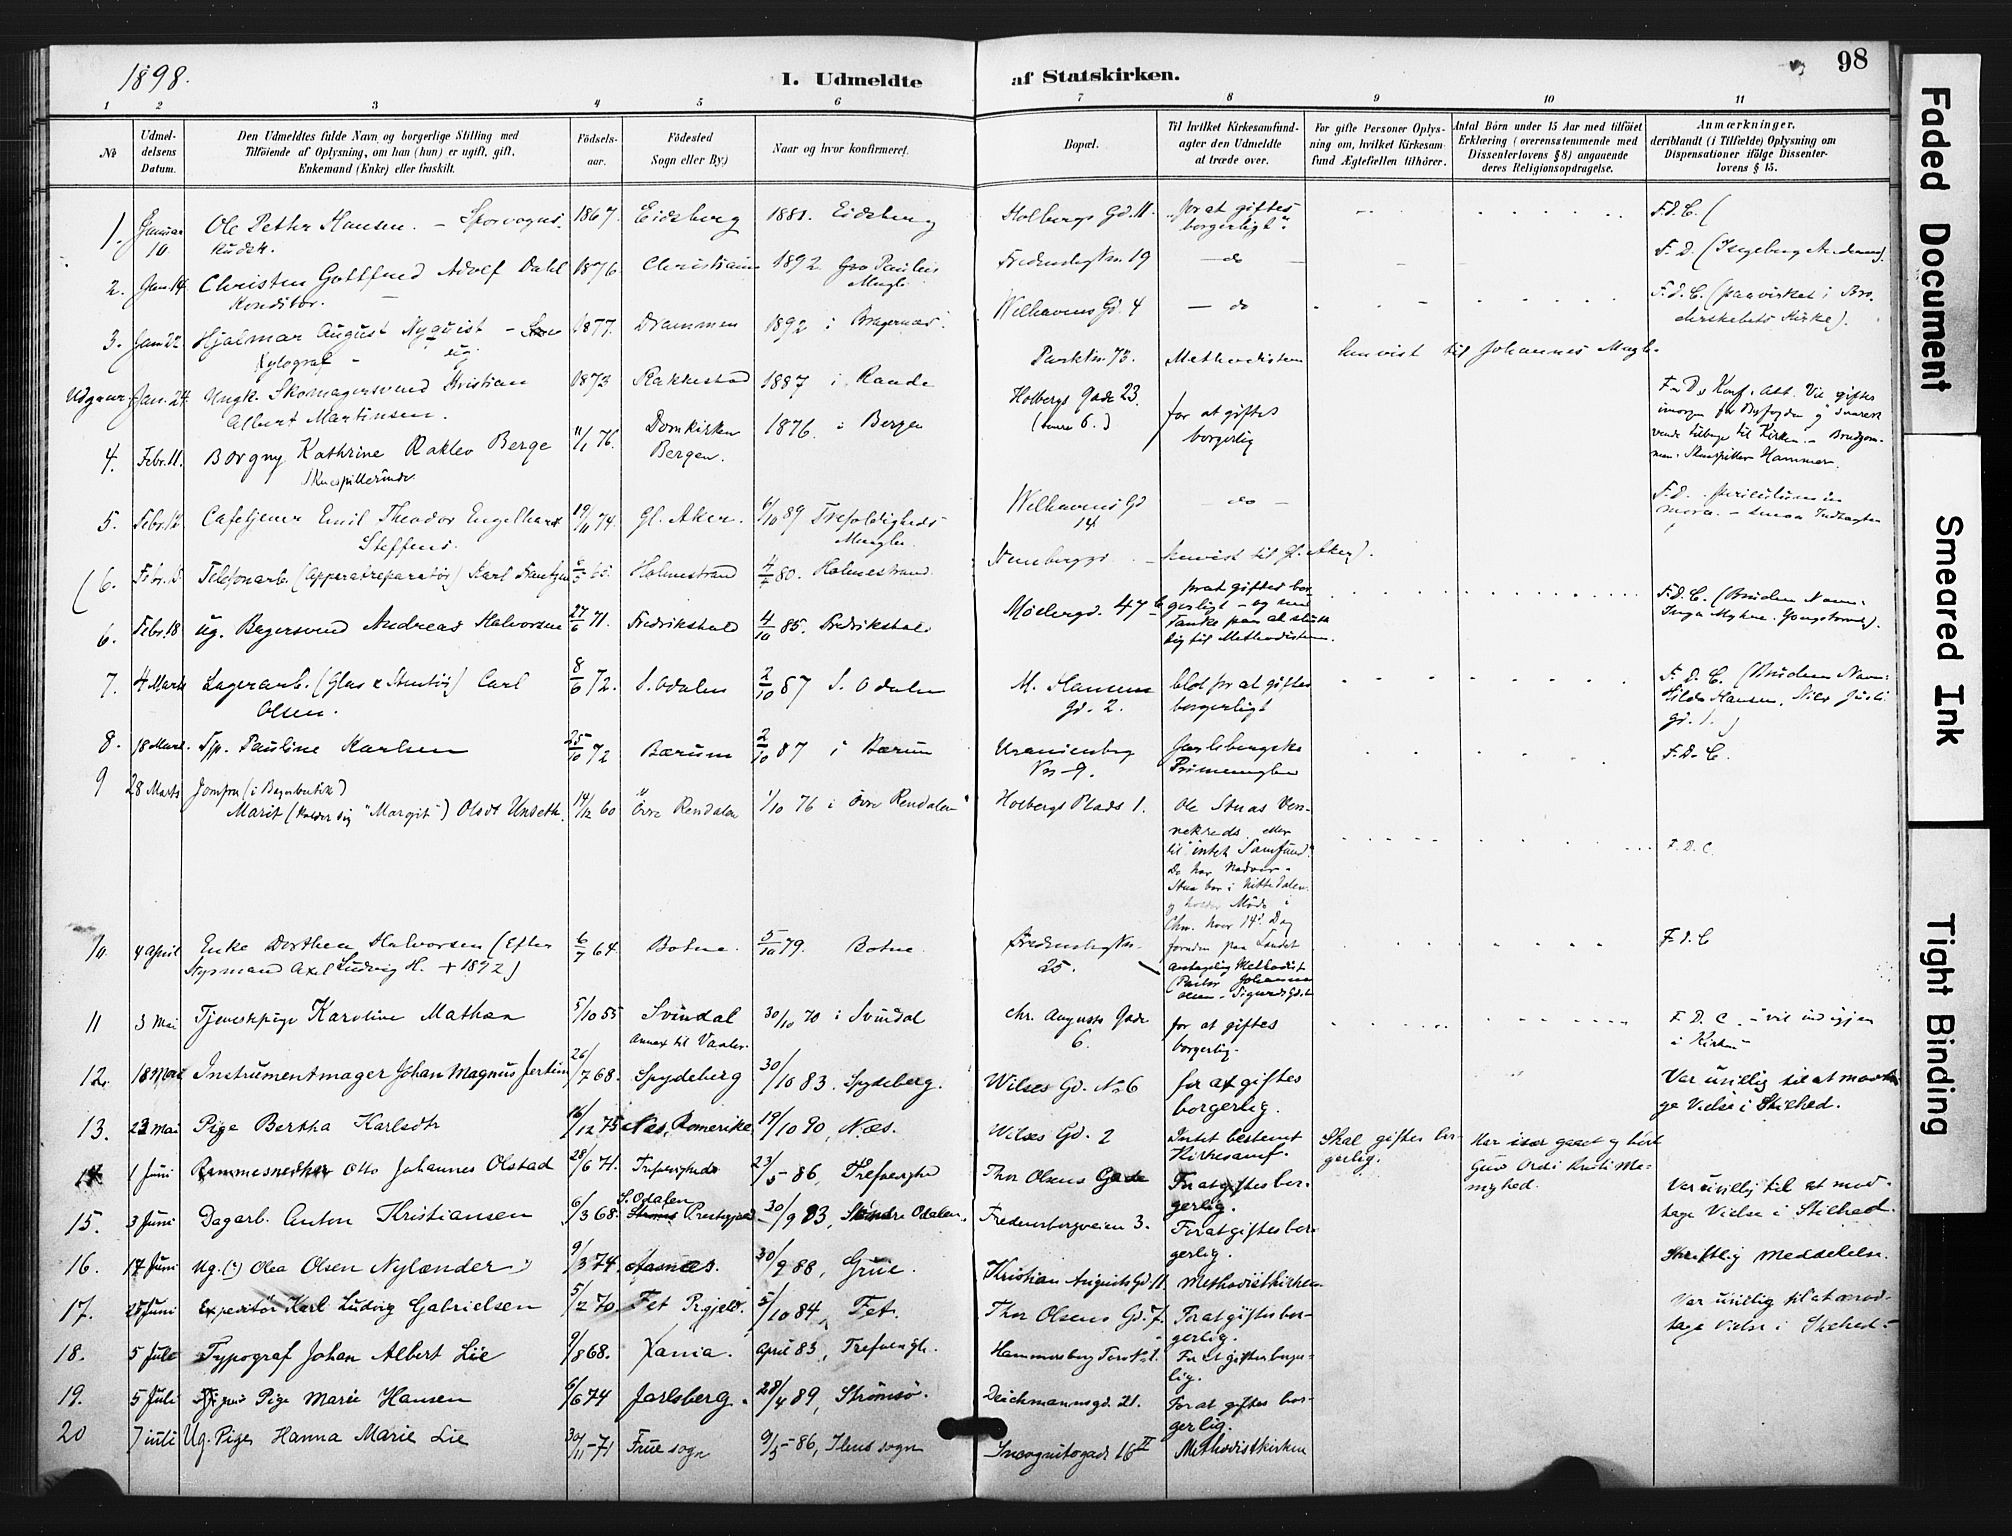 1898.
I. Udmeldte af Statskirken.
98
1 2 3 4 5 6 7 8 9 10 11
№
Udmel-
delsens
Datum.
Den Udmeldtes fulde Navn og borgerlige Stilling med
Tilføiende af Oplysning, om han (hun) er ugift, gift,
Enkemand (Enke) eller fraskilt.
Fødsels-
aar.
Fødested
Sogn eller By)
Naar og hvor konfirmeret.
Bopæl.
Til hvilket Kirkesamfund-
agter den Udmeldte
at træde over.
For gifte Personer Oplys-
ning om, hvilket Kirkesam-
fund Ægtefællen tilhører.
Antal Börn under 15 Aar med tilföiet
Erklæring (overensstemmende med
Dissenterlovens § 8) angaaende
deres Religionsopdragelse.
Anmærkninger,
deriblandt (i Tilfælde) Oplysning om
Dispensationer ifölge Dissenter-
lovens § 15.
1. Januar 10. Ole Petter Hansen. – Sporvogns- 1867. Eidsberg 1881. Eidsberg Holbergs Gd. 11. "for at giftes F.D.C. (
kudsk. borgerligt".
2. Jan. 14 Christen Gottfried Adolf Dahl 1876 Christiania 1892 Paulus Fredensborgvn. 19 – do – F. D.
Konditor. Mengh.
3. Jan. 22 Hjalmar August Nyqvist – 1877. Drammen 1892 i Bragernæs. Welhavens Gd. 4 – do F.D.C. (paavirket i Bro-
Xylograf – ug. derskabets Kirke).
Jan. 24. Ungk. Skomagersvend Kristian 1873 Rakkestad 1887 i Raade Parkvn. 73. Methodisten henvist til Johannes Mngh.
Albert Martinsen.
4. Febr. 11. Borgny Kathrine Raklev Berge 11/1 76. Domkirken 1876. i Bergen Holbergs Gade 23. for at giftes
Skuespillerinde Bergen. borgerlig
Skuespiller Hammer.
5. Febr. 12. Cafetjener Emil Theodor Engelhardt 19/11 74. Gl. Aker. 6/10 89 Trefoldigheds Welhavens Gd – do – F.D.
Steffens. Mengh. 14
(6. Telefonarb. (Apparatreparatør) Karl 65. Holmestrand 80. Holmestrand – henvist til Gl. Aker).
6. Febr. 18 ug. Bagersvend Andreas Halvorsen 27/6 71. Fredrikshald 4/10 85. Fredrikshald Møllergd. 47 b for at giftes bor- F.D.C. (Brudens Navn:
gerligt – og med
Tanke paa at slutte
sig til Methodisterne.
7. 4 Marts Lagerarb. (Glas & Stentøj) Carl 8/6 72. S. Odalen 2/10 87 S. Odalen M. Hansens blot for at giftes F.D.C. (Brudens Navn:
Olsen. Gd. 2. borgerligt Hilda Hansen,
gd. 1.)
8. 18 Marts. Pauline Karlsen 25/10 72 Bærum 2/10 87 i Bærum Uranienborg F.D.C.
Vn 9.
9 28 Marts Jomfru (i Bagerbutik)
Marit (kalder sig "Margit") Olsdt Unseth. 14/12 60 Øvre Rendalen 1/10 76 i Øvre Rendalen Holbergs Plads 1. Ole Stuas Ven-
nekreds eller
til "intet Samfund". F.D.C.
Stua bor i Nittedalen
og holder Møde i
Chra. hver 14de Dag
10. 4 April Enke Dorthea Halvorsen (Efter 6/7 64. Botne. 5/10 79. Botne Fredensborgvn. foruden paa Landet F.D.C
Styrmand Axel Ludvig H. + 1892) 25. antagelig Methodist
11 3 Mai Tjenestepige Karoline Mathea 5/10 55 Svindal 30/10 70 i Svindal Chr. Augusts Gade for at giftes F.D.C. – vil ind igjen
Annex til Vaaler. 6. borgerlig. i Kirken –
12. 18 Mai Instrumentmager Johan Magnus 26/7 68. Spydeberg 30/10 83. Spydeberg. Wilses Gd. No 6 for at giftes Var uvillig til at modta-
borgerlig. ge Vielse i Stilhed.
13. 23 Mai Pige Bertha Karlsdtr 16/12 75 Næs, Romerike 19/10 90, Næs. Wilses Gd. 2 Intet bestemt Skal giftes bor- Har især gaaet og hört
Kirkesamf. gerlig. Guds Ord i Kristi Me-
nighed.
14 1 Juni Rammesnedker Otto Johannes Olstad 28/6 71. Trefoldigheds 23/5 86, Trefoldighs Thor Olsens Gade For at giftes bor- Var uvillig til at mod-
gerlig. tage Vielse i Stilhed.
15. 3 Juni Dagarb. Anton Kristiansen 6/3 68. S. Odalen Prestegjeld 30/9 83, Søndre Odalen. Fredensborgveien 3. For at giftes bor-
gerlig.
16. 14 Juni Ug. (?) Olea Olsen Nylænder 9/3 74. Aasnæs. 30/9 88, Grue. Kristian Augusts Gd. 11. Methodistkirken Skriftlig Meddelelse.
17. 25 Juni Expeditør Karl Ludvig Gabrielsen 5/2 70. Fet Prgjeld. 5/10 84, Fet. Thor Olsens Gd. 7. For at giftes bor- Var uvillig til at mod-
gerlig. tage Vielse i Stilhed.
18. 5 Juli Typograf Johan Albert Lie 9/8 68. Xania. April 83, Trefoldigh. Hammersborg Terr No 1. For at giftes borger-
lig.
19. 5 Juli Pige Marie Hansen 6/6 74 Jarlsberg. 28/4 89, Strömsö. Deichmannsgd. 21. For at giftes bor-
gerlig.
20 7 juli Ug. Pige Hanna Marie Lie 30/11 71 Frue sogn 9/5 86, Ilens sogn Incognitogade 16 II Methodistkirken
Faded Document
Smeared Ink
Tight Binding